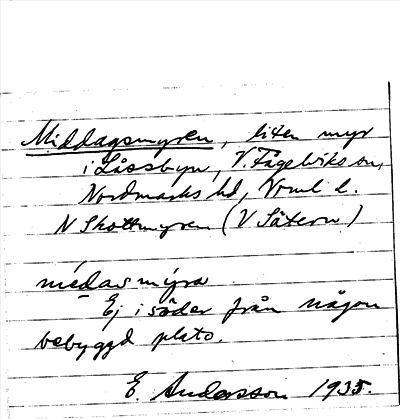 Middagsmyren, liten myr
i Låssbyn, V. Fågelviks sn,
Nordmarks hd, Vrml. l.
N Skottmyren (V Sätern)
médasmýra
Ej i söder från någon
bebyggd plats.
E. Andersson 1935.